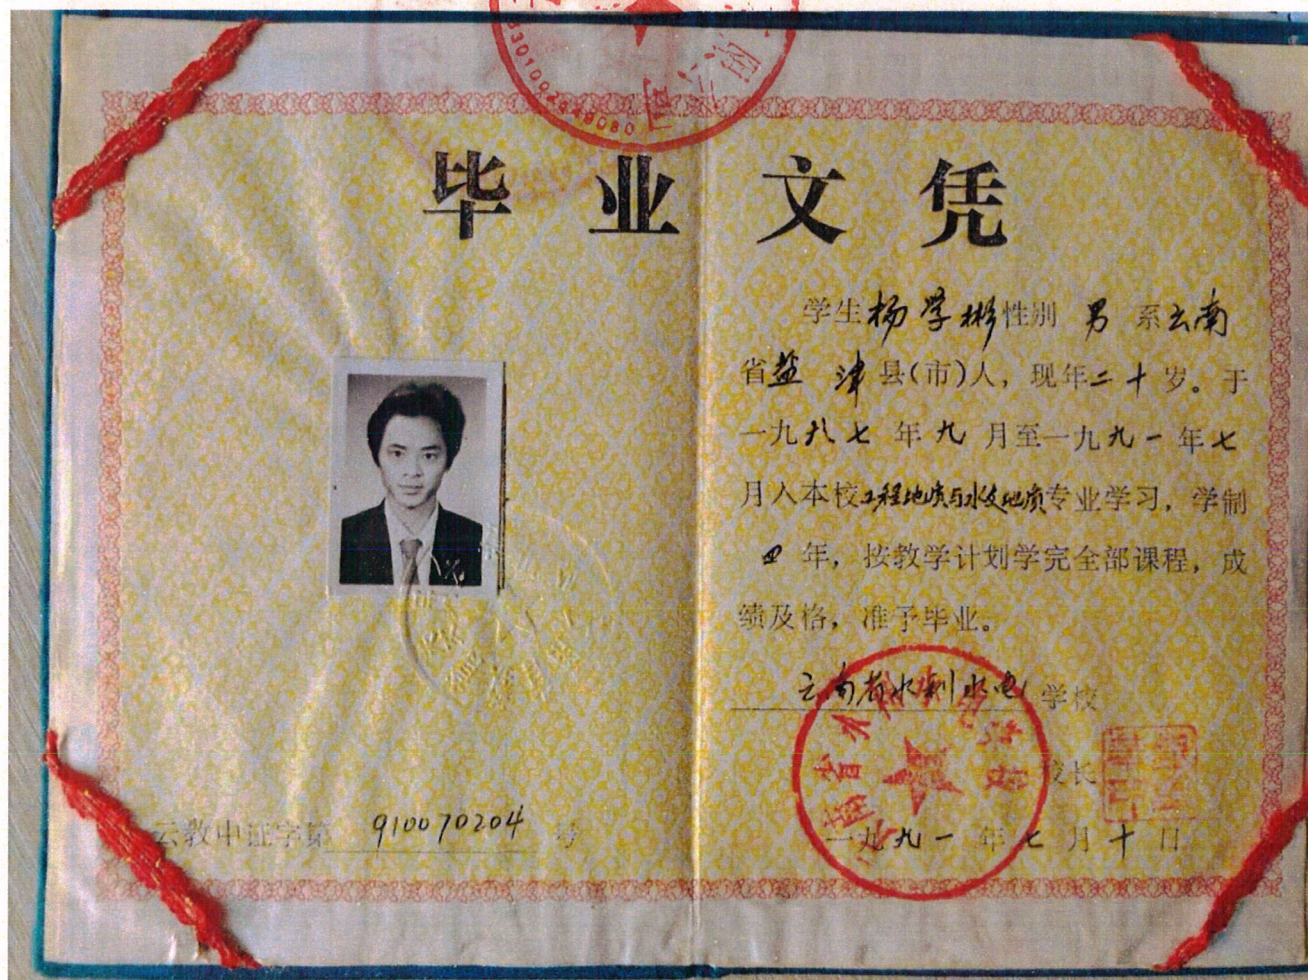 3301002449080
毕业文凭
学生杨学彬性别 男 系云南
省盐津县(市)人，现年二十岁。于
一九八七年九月至一九九一年七
月入本校工程地质与水文地质专业学习，学制
四年，按教学计划学完全部课程，成
绩及格，准予毕业。
云南省水利水电学校
校长
一九九一年七月十日
云教中证字第 910070204 号